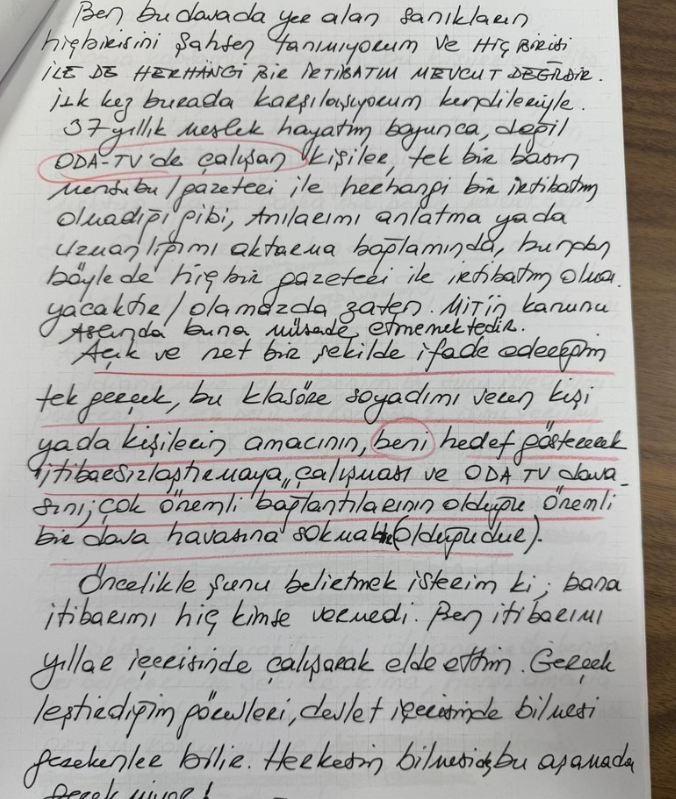 Ben bu davada yer alan sanıkların
hiçbirisini şahsen tanımıyorum ve HİÇ BİRİSİ
İLE DE HERHANGİ BİR İRTİBATIM MEVCUT DEĞİLDİR.
İlk kez burada karşılaşıyorum kendileriyle.
37 yıllık meslek hayatım boyunca, değil
ODA-TV'de çalışan kişiler, tek bir basın
mensubu/gazeteci ile herhangi bir irtibatım
olmadığı gibi, anılarımı anlatma yada
uzmanlığımı aktarma bağlamında, bundan
böyle de hiç bir gazeteci ile irtibatım olma
yacaktır/olamazda zaten. MİT'in kanunu
Aslında buna müsade etmemektedir.
Açık ve net bir şekilde ifade edeceğim
tek gerçek, bu klasöre soyadımı veren kişi
yada kişilerin amacının, beni hedef göstererek
"itibarsızlaştırmaya" çalışması ve ODA TV dava-
sını; çok önemli bağlantılarının olduğu önemli
bir dava havasına sokmak (olduğudur).
Öncelikle şunu belirtmek isterim ki; bana
itibarımı hiç kimse vermedi. Ben itibarımı
yıllar içerisinde çalışarak elde ettim. Gerçek
leştirdiğim görevleri, devlet içerisinde bilmesi
gerekenler bilir. Herkesin bilmesi de, bu aşamada